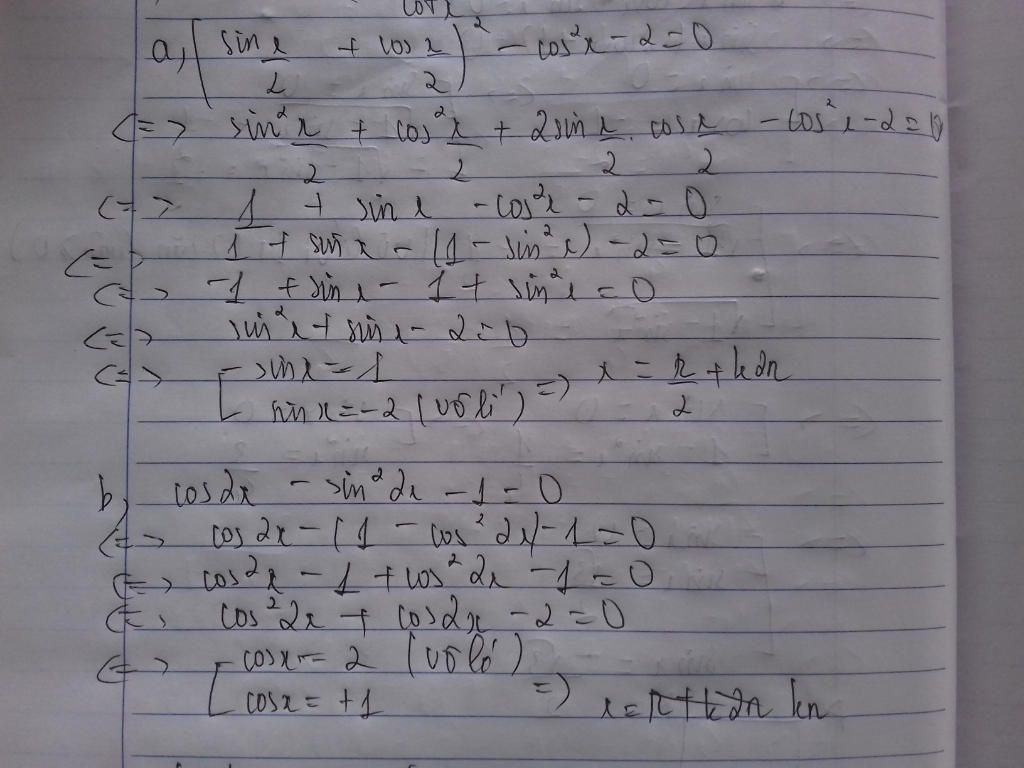 a, (sin x/2 + cos x/2)² - cos²x - 2 = 0
<=> sin² x/2 + cos² x/2 + 2 sin x/2 . cos x/2 - cos² x - 2 = 0
<=> 1 + sin x - cos²x - 2 = 0
<=> 1 + sin x - (1 - sin² x) - 2 = 0
<=> -1 + sin x - 1 + sin² x = 0
<=> sin² x + sin x - 2 = 0
<=> [ sin x = 1
sin x = -2 (vô lí) => x = π/2 + k2π
b, cos 2x - sin² 2x - 1 = 0
<=> cos 2x - (1 - cos² 2x) - 1 = 0
<=> cos 2x - 1 + cos² 2x - 1 = 0
<=> cos² 2x + cos 2x - 2 = 0
<=> [ cos x = 2 (vô lí)
cos x = +1 => x = kπ